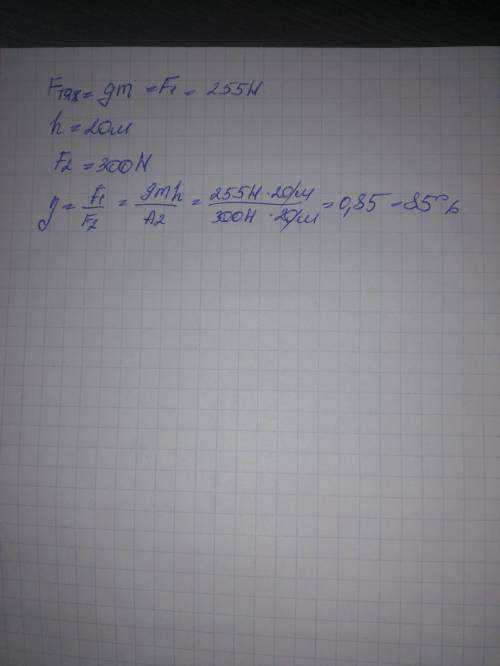 Fтяж = gm = F1 = 255Н
h = 20м
F2 = 300Н
η = F1/F2 = gmh/A2 = 255Н · 20м/300Н · 20м = 0,85 = 85%